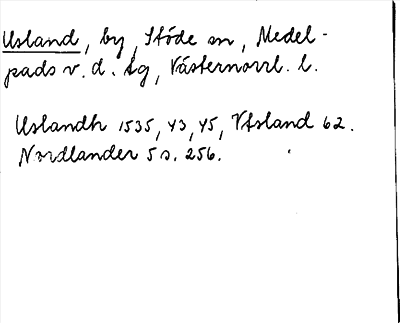 Usland, by, Stöde sn, Medel-
pads v. d. tg, Västernorrl. l.
Uslandh 1535, 43, 45, Vtsland 62.
Nordlander 5 s. 256.